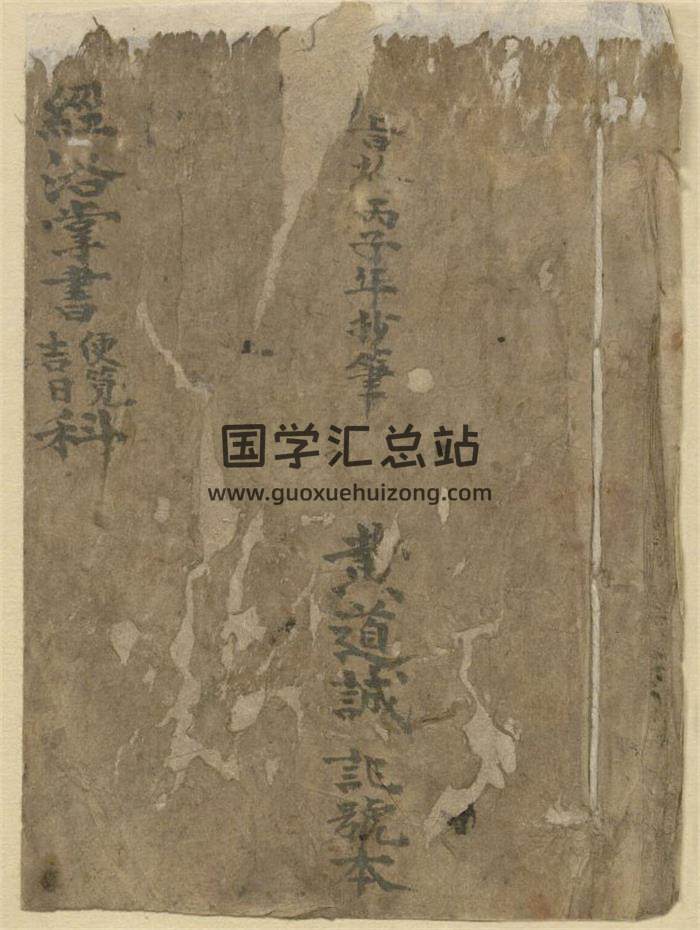 丙子年抄筆
道誠 記號本
經浴掌書
便覽
吉日
科
国学汇总站
www.guoxuehuizong.com